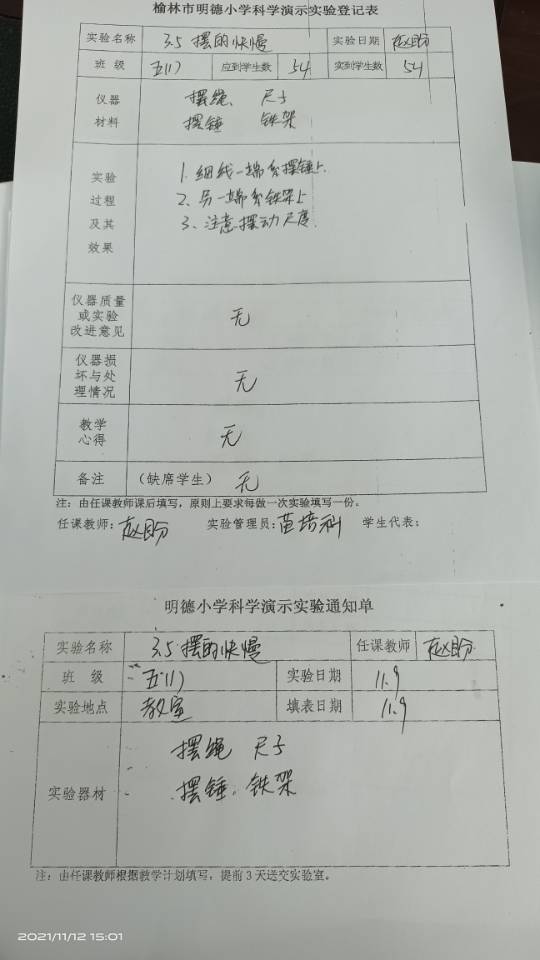 榆林市明德小学科学演示实验登记表
实验名称 3.5 摆的快慢 实验日期 赵盼
班 级 五(1) 应到学生数 54 实到学生数 54
仪器材料 摆绳、 尺子
摆锤 铁架
实验过程及其效果 1. 细线一端系摆锤上.
2. 另一端系铁架上
3、注意摆动尺度.
仪器质量或实验改进意见 无
仪器损坏与处理情况 无
教学心得 无
备注 (缺席学生) 无
注: 由任课教师课后填写, 原则上要求每做一次实验填写一份。
任课教师: 赵盼 实验管理员: 苗培科 学生代表:
明德小学科学演示实验通知单
实验名称 3.5 摆的快慢 任课教师 赵盼
班 级 五(1) 实验日期 11.9
实验地点 教室 填表日期 11.9
实验器材 摆绳 尺子
摆锤. 铁架
注: 由任课教师根据教学计划填写, 提前3天送交实验室。
2021/11/12 15:01